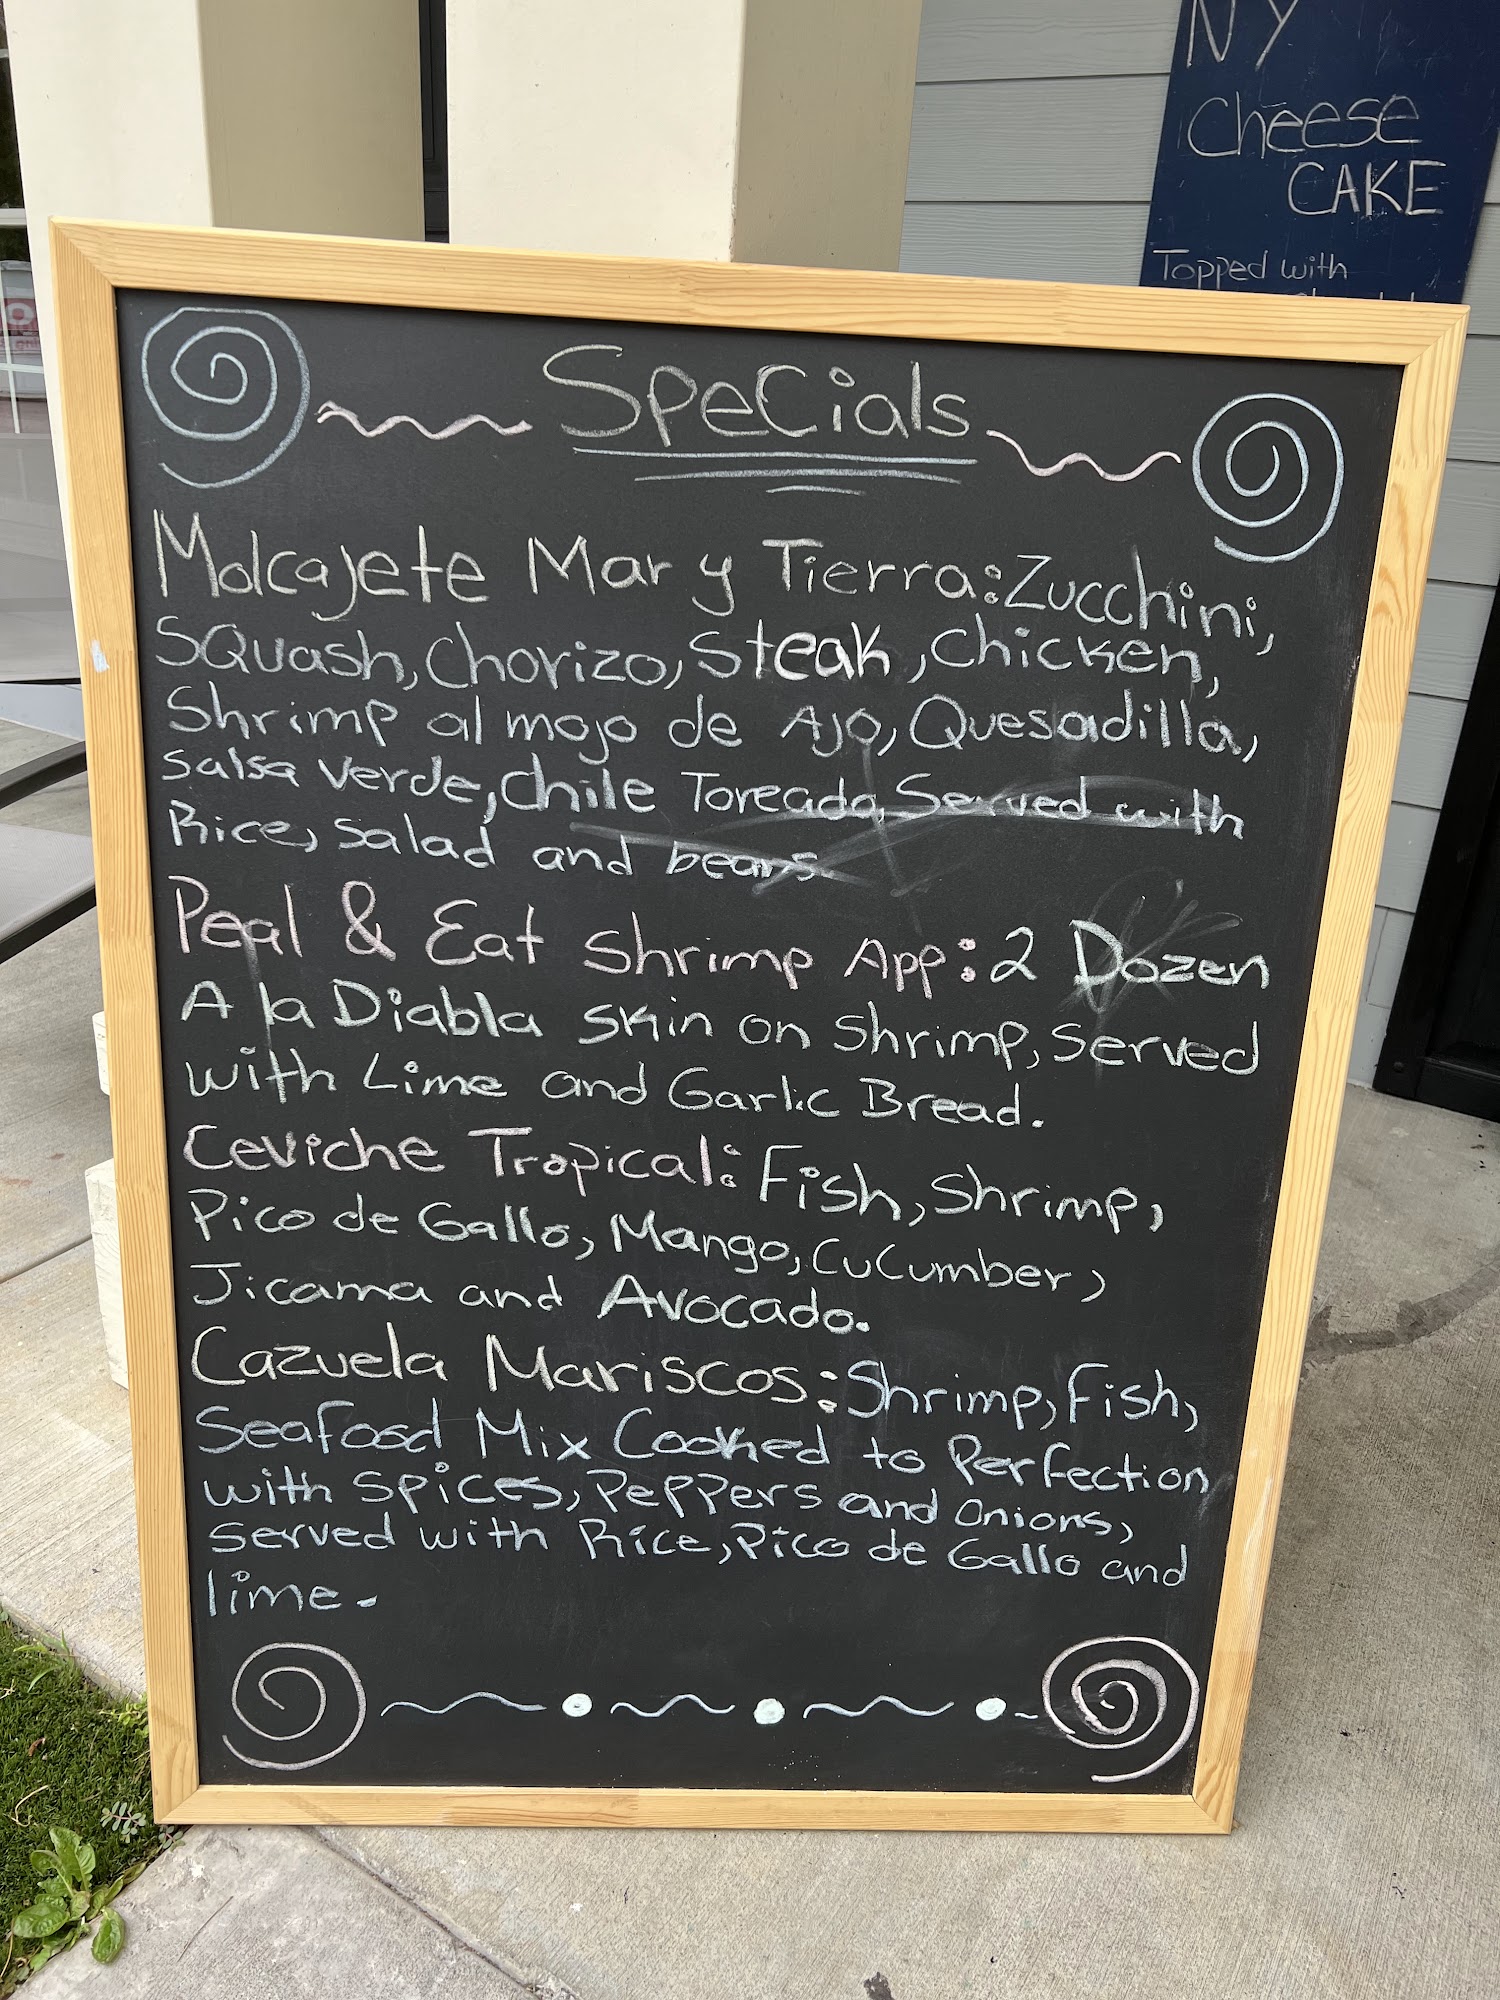 NY
Cheese
CAKE
Topped with
Specials
Molcajete Mar y Tierra: Zucchini,
Squash, Chorizo, Steak, Chicken,
Shrimp al mojo de Ajo, Quesadilla,
Salsa verde, Chile Toreado, Served with
Rice, Salad and beans
Peal & Eat Shrimp App: 2 Dozen
A la Diabla skin on shrimp, served
with Lime and Garlic Bread.
Ceviche Tropical: Fish, Shrimp,
Pico de Gallo, Mango, Cucumber,
Jicama and Avocado.
Cazuela Mariscos: Shrimp, Fish,
Seafood Mix Cooked to Perfection
with spices, Peppers and onions,
served with Rice, Pico de Gallo and
lime.